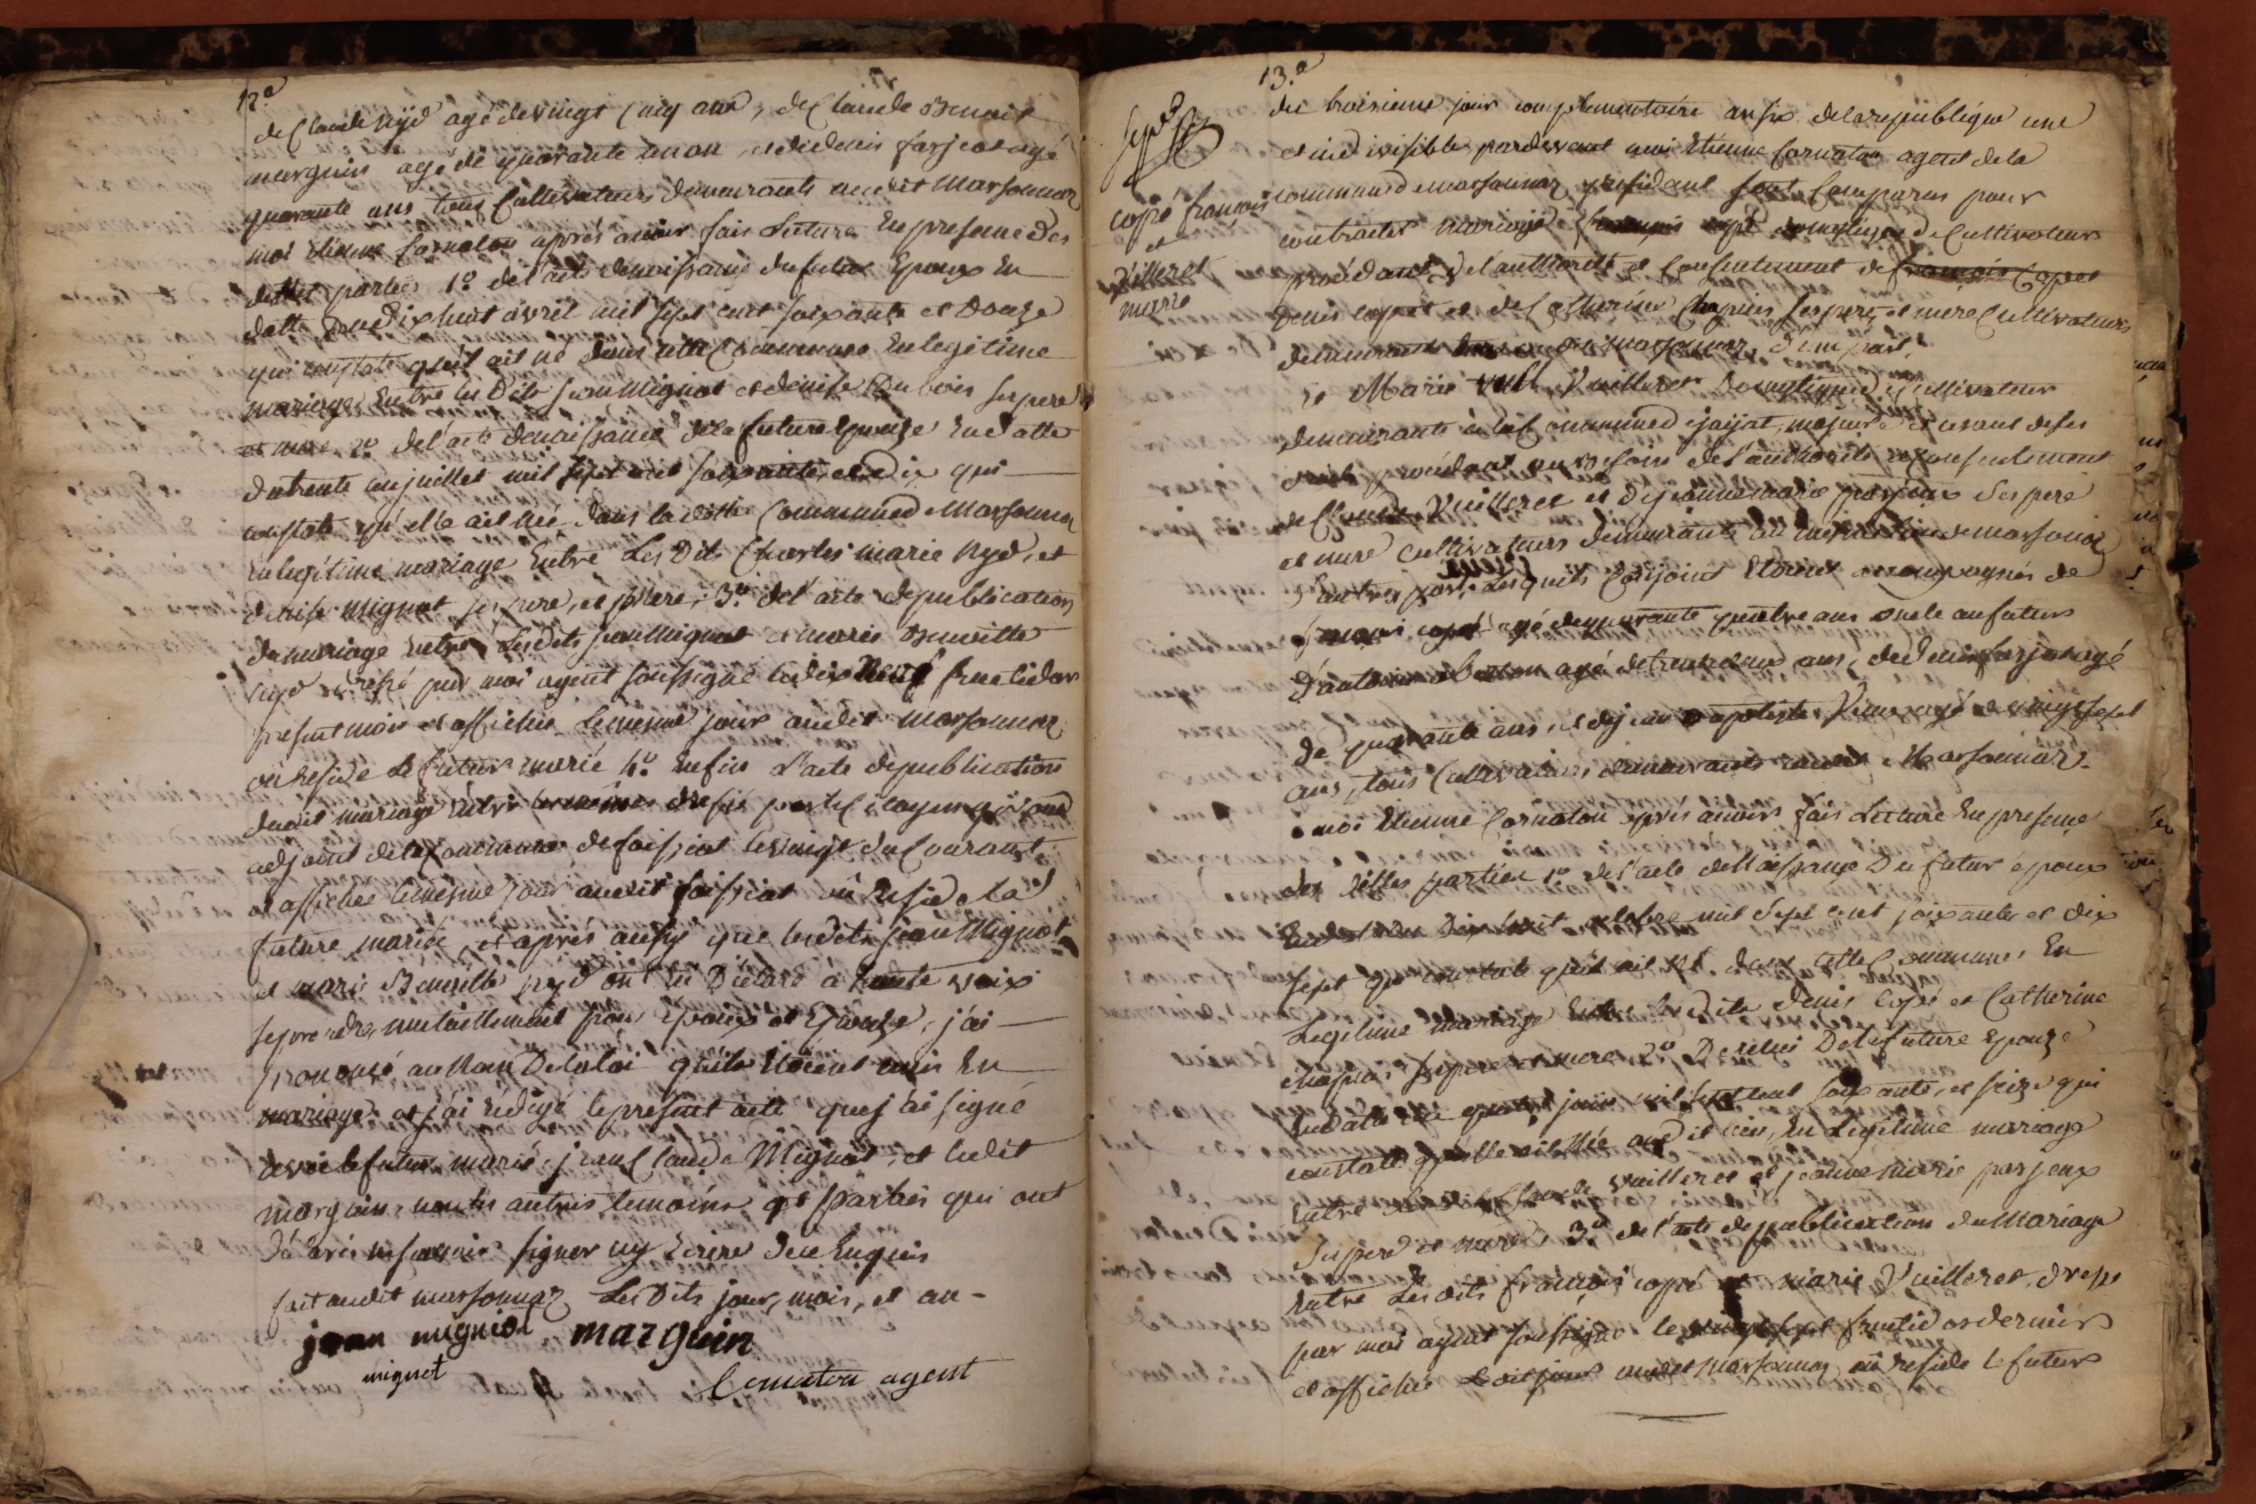 12.e
de Claude nyd agé de vingt cinq ans, de Claude Benoit
marguin agé de quarante un an, et de denis farjeot agé
quarante ans tous Cultivateurs demeurants audit Marsonnaz
moi etienne Cornaton aprés avoir fais Lecture En presence des
dittes parties 1.o de l'acte de naissance du futur Epoux En
datte du dix huit avril mil sept cent soixante et Douze
qui constate qu'il ait né dans cette Commune En legitime
mariage Entre les Dits jean Mignot et denise Dubois ses pere
et mere 2.o de l'acte de naissance de la future Epouze En datte
du trente un juillet mil sept cent soixante et dix qui
constate qu'elle ait Née dans laditte Commune de Marsonna
En legitime mariage Entre Les Dits Charles marie Nyd, et
denise Mignot ses pere, et mere, 3.o de l'acte de publication
de mariage Entre Lesdits jean Mignot et marie Benoitte
nyd dressé par moi agent soussigné le dix Neuf fructidor
present mois et affichée Le meme jour audit marsonnaz
ou Reside Le futur marié 4.o Enfin L'acte de publication
dudit mariage Entre les mêmes dressé par le Citoyen
adjoint de la Commune de foissiat le vingt du Courant
et affichée le meme jour audit foissiat où Reside La
future mariée, et aprés aussy que lesdits jean Mignot
et marie Benoitte nyd ont Eu Déclaré à haute voix
se prendre mutuellement pour Epoux et Epouze, j'ai
prononcé au Nom De la loi qu'ils Etoient unis En
mariage et j'ai rédigé le present acte que j'ai signé
avec le futur marié, jean Claude Mignot, et ledit
marguin, non les autres temoins et parties qui ont
déclaré ne savoir signer ny Ecrire de ce Enquis
fait audit marsonnaz Les Dits jour, mois, et an -
jean mignot marguin
mignot
Cornaton agent
13.e
copé françois
et
Vuilleret
marie
du troisieme jour complementaire an six de la republique une
et indivisible pardevant moi Etienne Cornaton agent de la
commune de marsonnaz president sont Comparus pour
contracter mariage françois copé domestique de Cultivateur
procédant de l'authorité et Consentement de françois Copet
Denis copet et de Catherine Chapuis ses pere, et mere Cultivateurs
demeurants audit marsonnaz, d'une part,
et Marie Vuilleret Domestique de Cultivateur
demeurante à la Commune de jayat, majeure et usant de ses
droits procédant au Besoin de l'authorité et Consentement
de Claude Vuilleret et de jeanne marie parjeux Ses pere
et mere Cultivateurs demeurants au de marsonnaz
d'autre part, Lesquels Conjoint Etoient accompagnés de
françois copet agé de quarante quatre ans oncle au futur
D'antoine agé de trente deux ans, de denis farjeot agé
de quarante ans, et de jean Baptiste agé de vingt sept
ans, tous Cultivateurs demeurants audit Marsonnaz
moi Etienne Cornaton aprés avoir fais Lecture En presence
des dittes parties 1.o de l'acte de Naissance Du futur epoux
En datte du Dix huit octobre mil Sept cent soixante et dix
sept qui constate qu'il ait né dans cette Commune En
Legitime mariage Entre lesdits denis Copé et Catherine
chapuis ses pere et mere 2.o De celui De la future Epouze
En datte du quatre juin mil sept cent soixante, et seize qui
constate qu'elle ait Née audit lieu, En Legitime mariage
Entre Claude vuilleret et jeanne marie parjeux
Ses pere et mere, 3.o de l'acte de publication du Mariage
Entre Lesdits françois copé et marie Vuilleret, dressé
par moi agent soussigné le vingt sept fructidor dernier
et affichée Ledit jour audit Marsonnaz où reside le futur